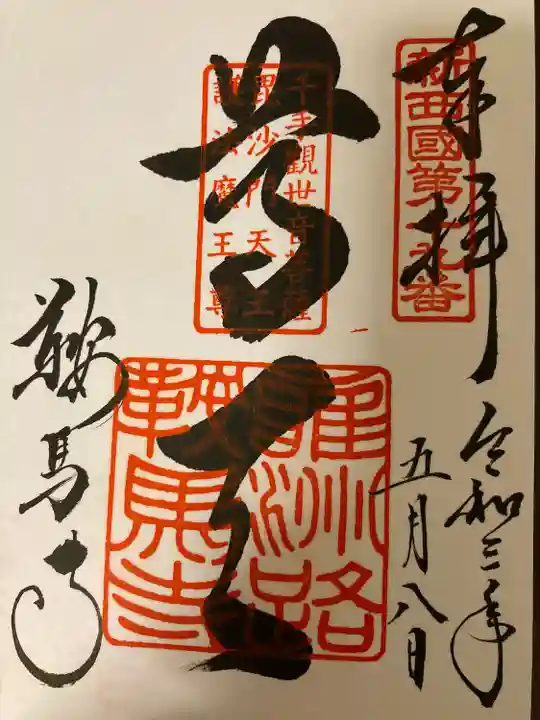 奉拝
新西國第十九番
令和三年
五月八日
尊天
千手觀世音菩薩
毘沙門天王
護法魔王尊
雍州路
鞍馬寺
鞍馬寺